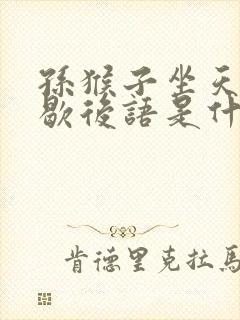 孫猴子坐天
歇後語是什
肯德里克拉馬